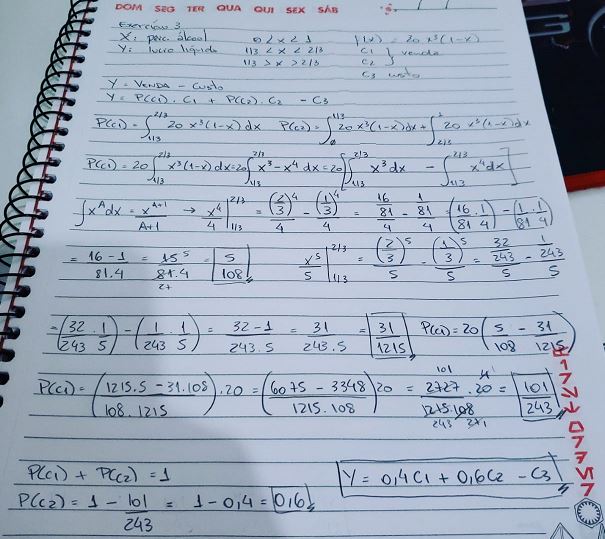 DOM SEG TER QUA QUI SEX SÁB
Exercício 3
X: perc. álcool 0 < x < 1 f(x) = 20x³(1-x)
Y: lucro líquido 1/3 < x < 2/3 C1 } venda
1/3 > x > 2/3 C2
C3 custo
Y = VENDA - CUSTO
Y = P(C1) . C1 + P(C2) . C2 - C3
P(C1) = ∫_{1/3}^{2/3} 20x³(1-x)dx P(C2) = ∫_0^{1/3} 20x³(1-x)dx + ∫_{2/3}^1 20x³(1-x)dx
P(C1) = 20 ∫_{1/3}^{2/3} x³(1-x)dx = 20 ∫_{1/3}^{2/3} x³ - x⁴ dx = 20 [∫_{1/3}^{2/3} x³dx - ∫_{1/3}^{2/3} x⁴dx]
∫x^A dx = x^{A+1}/A+1 → x⁴/4 |_{1/3}^{2/3} = (2/3)⁴/4 - (1/3)⁴/4 = 16/81/4 - 1/81/4 = (16/81 . 1/4) - (1/81 . 1/4)
= 16-1/81.4 = 15⁵/81.4 27 = 5/108 x⁵/5 |_{1/3}^{2/3} = (2/3)⁵/5 - (1/3)⁵/5 = 32/243/5 - 1/243/5
= (32/243 . 1/5) - (1/243 . 1/5) = 32-1/243.5 = 31/243.5 = 31/1215 P(C1) = 20 (5/108 - 31/1215)
P(C1) = (1215.5 - 31.108/108.1215) . 20 = (6075 - 3348/1215.108) 20 = 101 2727/1215.108 . 20 243 27 1 = 101/243
P(C1) + P(C2) = 1 Y = 0,4C1 + 0,6C2 - C3
P(C2) = 1 - 101/243 = 1 - 0,4 = 0,6